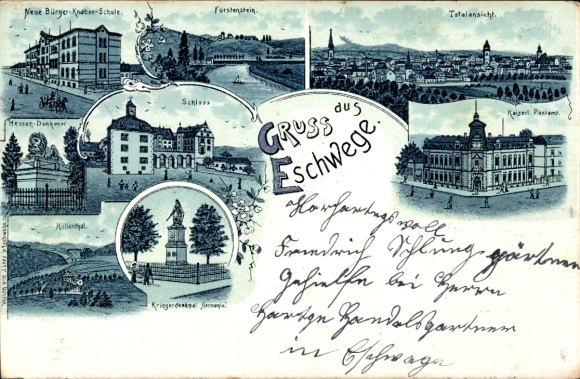 Neue Bürger-Knaben-Schule.
Fürstenstein.
Totalansicht.
Hessen-Denkmal
Schloss
Kaiserl. Postamt.
Gruss aus
Eschwege.
Höllenthal.
Kriegerdenkmal „Germania“.
Friedrich Schlung gärtner
Gehielfe bei Herrn
Hartge Handelsgärtner
in Eschwege